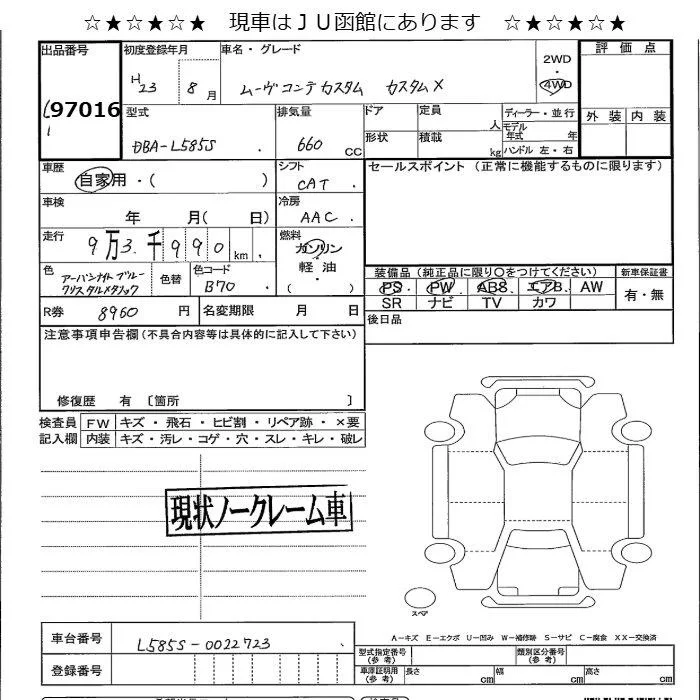 ☆★☆★☆★☆ 現車はＪＵ函館にあります ☆★☆★☆★☆
出品番号 初度登録年月 車名・グレード 2WD 評価点
H23 8月 ムーヴコンテカスタム カスタムX 4WD
97016 型式 排気量 ドア 定員 ディーラー・並行 外装 内装
人 モデル年式 年
DBA-L585S 660 CC 形状 積載 kg ハンドル 左・右
車歴 シフト セールスポイント (正常に機能するものに限ります)
自家用・( ) CAT
車検 冷房
年 月( 日) AAC
走行 燃料
9万3千990km ガソリン
軽油
( )
色 色替 色コード 装備品(純正品に限り○をつけてください) 新車保証書
アーバンナイトブルークリスタルメタリック B70 PS PW ABS エアB AW 有・無
SR ナビ TV カワ
R券 8960 円 名変期限 月 日 後日品
注意事項申告欄(不具合内容等は具体的に記入して下さい)
修復歴 有 〔箇所 〕
検査員 FW キズ・飛石・ヒビ割・リペア跡・×要
記入欄 内装 キズ・汚レ・コゲ・穴・スレ・キレ・破レ
現状ノークレーム車
スペア
A-キズ E-エクボ U-凹み W-補修跡 S-サビ C-腐食 XX-交換済
車台番号 L585S-0022723
型式指定番号(参考) 類別区分番号(参考)
登録番号 車庫証明用(参考) 長さ cm 幅 cm 高さ cm